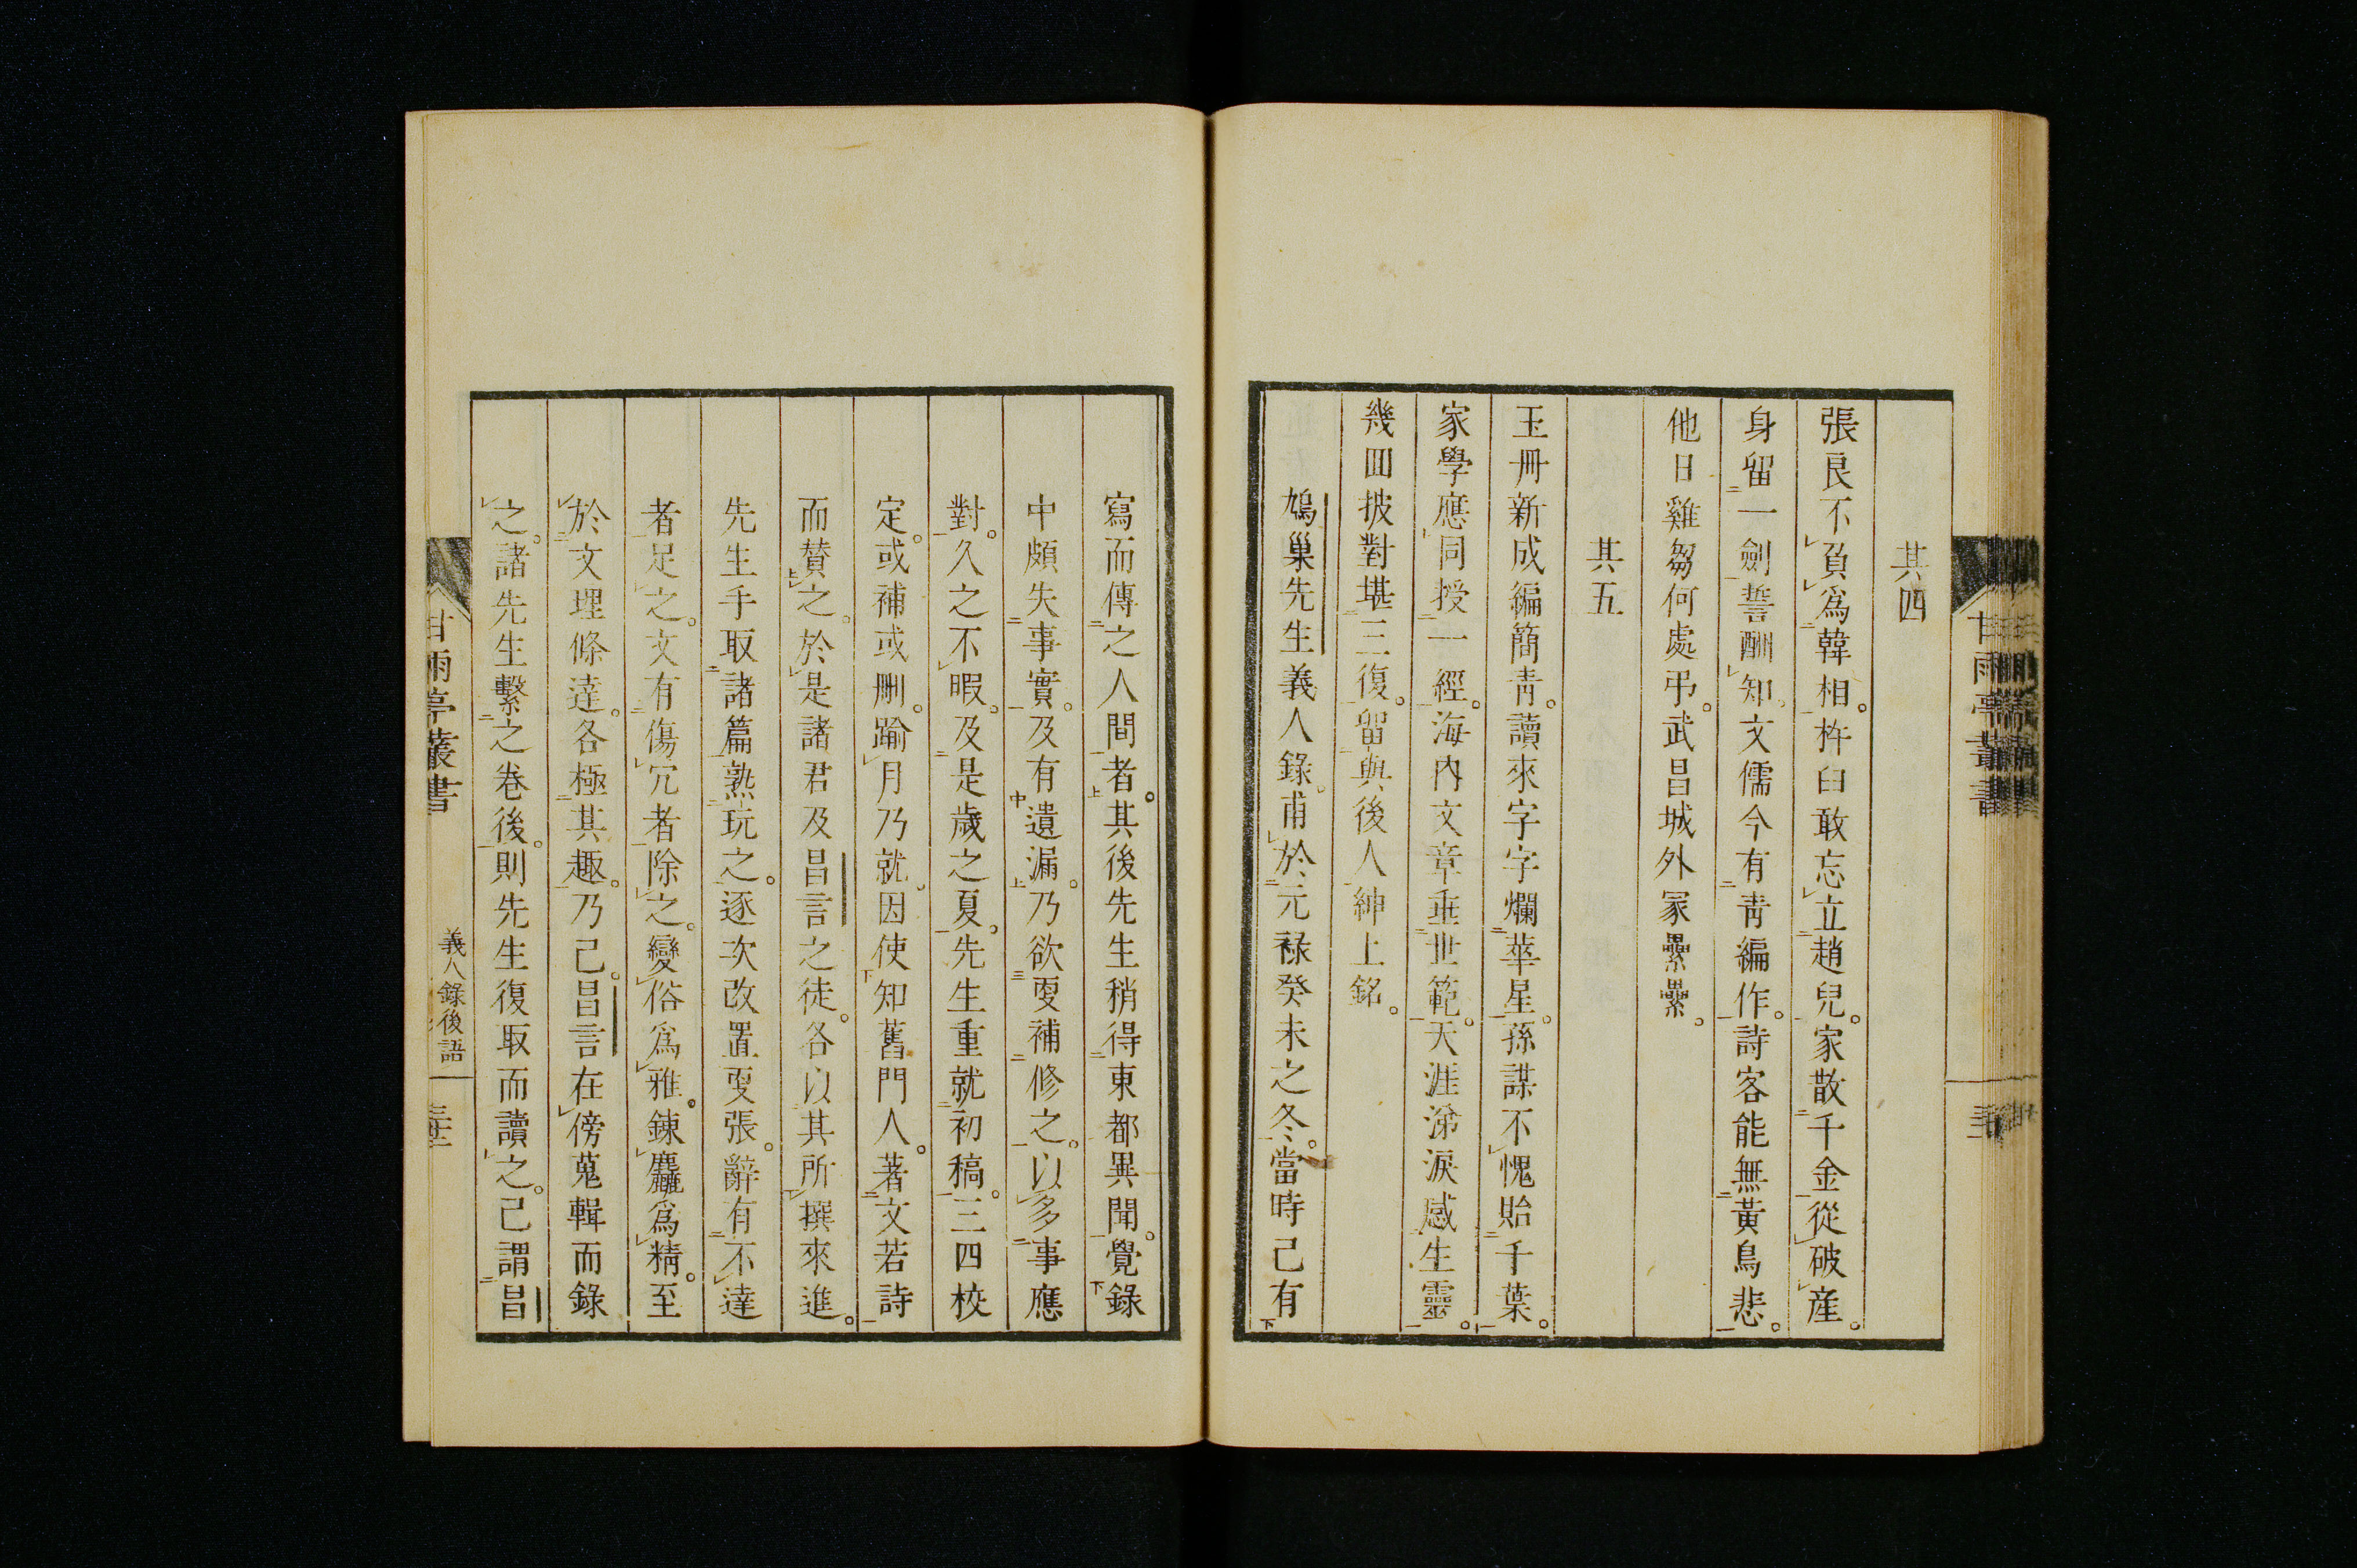 其四
張良不負爲韓相。杵臼敢忘立趙兒。家散千金從破產。
身留一劍誓酬知。文儒今有靑編作。詩客能無黃鳥悲。
他日雞芻何處弔。武昌城外冢纍纍。
其五
玉冊新成編簡靑。讀來字字爛華星。孫謀不愧貽千葉。
家學應同授一經。海內文章垂世範。天涯涕淚感生靈。
幾回披對堪三復。留與後人紳上銘。
鳩巢先生義人錄。甫於元祿癸未之冬。當時已有
寫而傳之人間者。其後先生稍得東都異聞。覺錄
中頗失事實。及有遺漏。乃欲更補修之。以多事應
對。久之不暇。及是歲之夏。先生重就初稿。三四校
定。或補或刪。踰月乃就。因使知舊門人。著文若詩
而贊之。於是諸君及昌言之徒。各以其所撰來進。
先生手取諸篇熟玩之。逐次改置更張。辭有不達
者足之。文有傷冗者除之。變俗爲雅。鍊麤爲精。至
於文理條達。各極其趣。乃已。昌言在傍蒐輯而錄
之。諸先生繫之卷後。則先生復取而讀之。已謂昌
甘雨亭叢書
義人錄後語